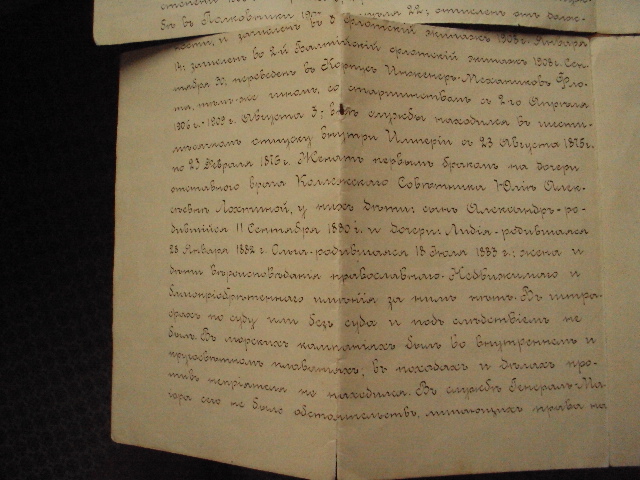 въ Полковники 22; отчисленъ отъ долж-
ности, и зачисленъ въ 8 флотскій экипажъ 1908 г. Января
14; зачисленъ во 2й Балтійскій флотскій экипажъ 1908 г. Сен-
тября 30; переведенъ въ Корпусъ Инженеръ-Механиковъ Фло-
та, тѣмъ-же чиномъ, со старшинствомъ съ 2-го Апрѣля
1906 г. - 1909 г. Августа 3; внѣ службы находился въ шести-
мѣсячномъ отпуску внутри Имперіи съ 23 Августа 1875 г.
по 23 Февраля 1876 г. Женатъ первымъ бракомъ на дочери
отставного врача Коллежскаго Совѣтника Юліи Алек-
сѣевнѣ Лохтиной, у нихъ дѣти: сынъ Александръ-ро-
дившійся 11 Сентября 1880 г. и дочери: Лидія-родившаяся
28 Января 1882 г. Ольга-родившаяся 18 Іюля 1883 г.; жена и
дѣти вѣроисповѣданія православнаго. Недвижимаго и
благопріобрѣтеннаго имѣнія за нимъ нѣтъ. Въ штра-
фахъ по суду или безъ суда и подъ слѣдствіемъ не
былъ. Въ морскихъ кампаніяхъ былъ во внутреннемъ и
кругосвѣтномъ плаваніяхъ; въ походахъ и дѣлахъ про-
тивъ непріятеля не находился. Въ службѣ Генералъ-Ма-
іора сего не было обстоятельствъ, лишающихъ права на